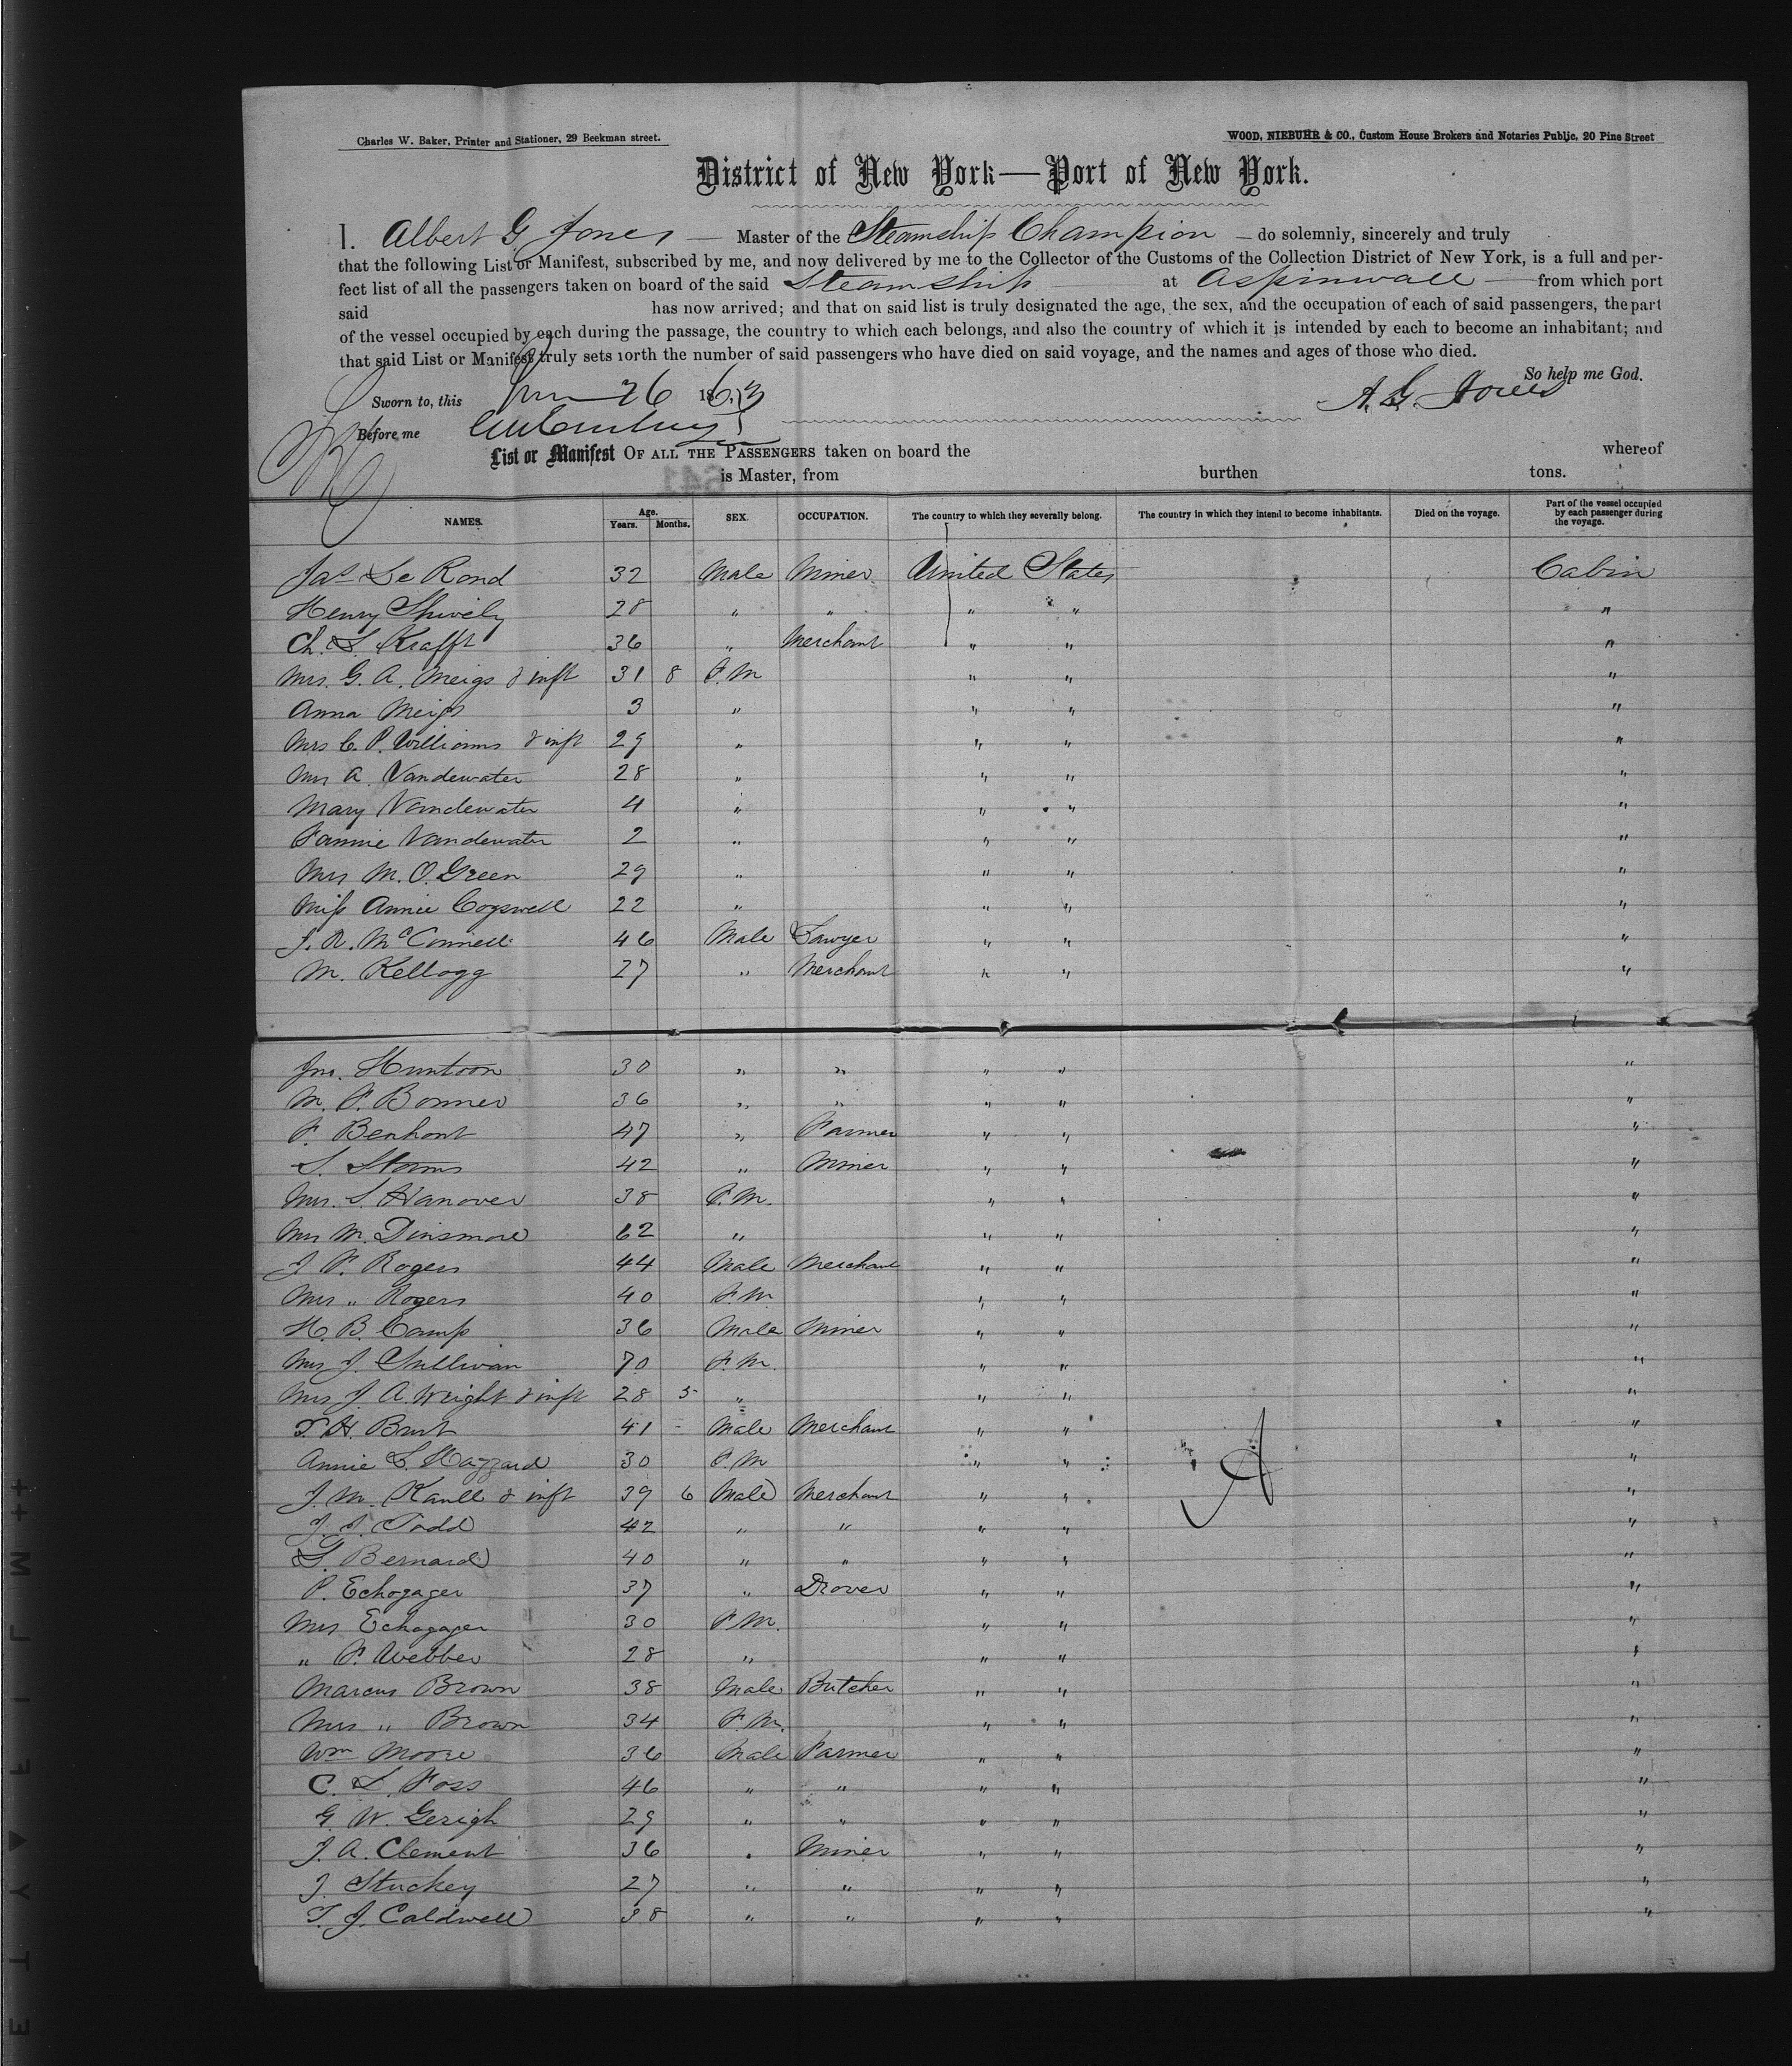 Charles W. Baker, Printer and Stationer, 29 Beekman street.
WOOD, NIEBUHR & CO., Custom House Brokers and Notaries Public, 20 Pine Street
District of New York—Port of New York.
I. Albert G. Jones — Master of the Steamship Champion — do solemnly, sincerely and truly
that the following List or Manifest, subscribed by me, and now delivered by me to the Collector of the Customs of the Collection District of New York, is a full and per-
fect list of all the passengers taken on board of the said Steamship at Aspinwall — from which port
said has now arrived; and that on said list is truly designated the age, the sex, and the occupation of each of said passengers, the part
of the vessel occupied by each during the passage, the country to which each belongs, and also the country of which it is intended by each to become an inhabitant; and
that said List or Manifest truly sets forth the number of said passengers who have died on said voyage, and the names and ages of those who died.
So help me God.
Sworn to, this 26 1863 A. G. Jones
Before me
List or Manifest OF ALL THE PASSENGERS taken on board the whereof
is Master, from burthen tons.
NAMES. Age. Years. Months. SEX. OCCUPATION. The country to which they severally belong. The country in which they intend to become inhabitants. Died on the voyage. Part of the vessel occupied by each passenger during the voyage.
Jas Le Rond 32 Male Miner United States Cabin
Henry Shively 28 " " " " "
Ch. L. Krafft 36 " Merchant " " "
Mrs. G. A. Meigs & inft 31 8 F.M " " "
Anna Meigs 3 " " " "
Mrs C. P. Williams & inft 29 " " " "
Mrs A Vandewater 28 " " " "
Mary Vandewater 4 " " " "
Fannie Vandewater 2 " " " "
Mrs M. O. Green 29 " " " "
Miss Annie Cogswell 22 " " " "
J. R. McConnell 46 Male Lawyer " " "
M. Kellogg 27 " Merchant " " "
Jno. Huntoon 30 " " " " "
M. F. Bonner 36 " " " " "
F. Benhont 47 " Farmer " " "
S. Storms 42 " Miner " " "
Mrs. S. Hanover 38 F.M. " " "
Mrs M. Dinsmore 62 " " " "
J F. Rogers 44 Male Merchant " " "
Mrs " Rogers 40 F.M " " "
H. B. Camp 36 Male Miner " " "
Mrs J. Sullivan 70 F.M. " " "
Mrs J. A. Wright & inft 28 5 " " " "
T. H. Burt 41 - Male Merchant " " "
Annie L. Hazzard 30 F.M " " "
J. M. Kaull & inft 39 6 Male Merchant " " "
J. S. Todd 42 " " " " "
L. Bernard 40 " " " " "
P. Echogager 37 " Drover " " "
Mrs Echogager 30 F.M. " " "
" F. Webber 28 " " " "
Marcus Brown 38 Male Butcher " " "
Mrs " Brown 34 F.M. " " "
Wm Moore 36 Male Farmer " " "
C. L. Foss 46 " " " " "
G. W. Gerigh 29 " " " " "
J. A. Clement 36 " Miner " " "
J. Stuckey 27 " " " " "
T. J. Caldwell 38 " " " " "